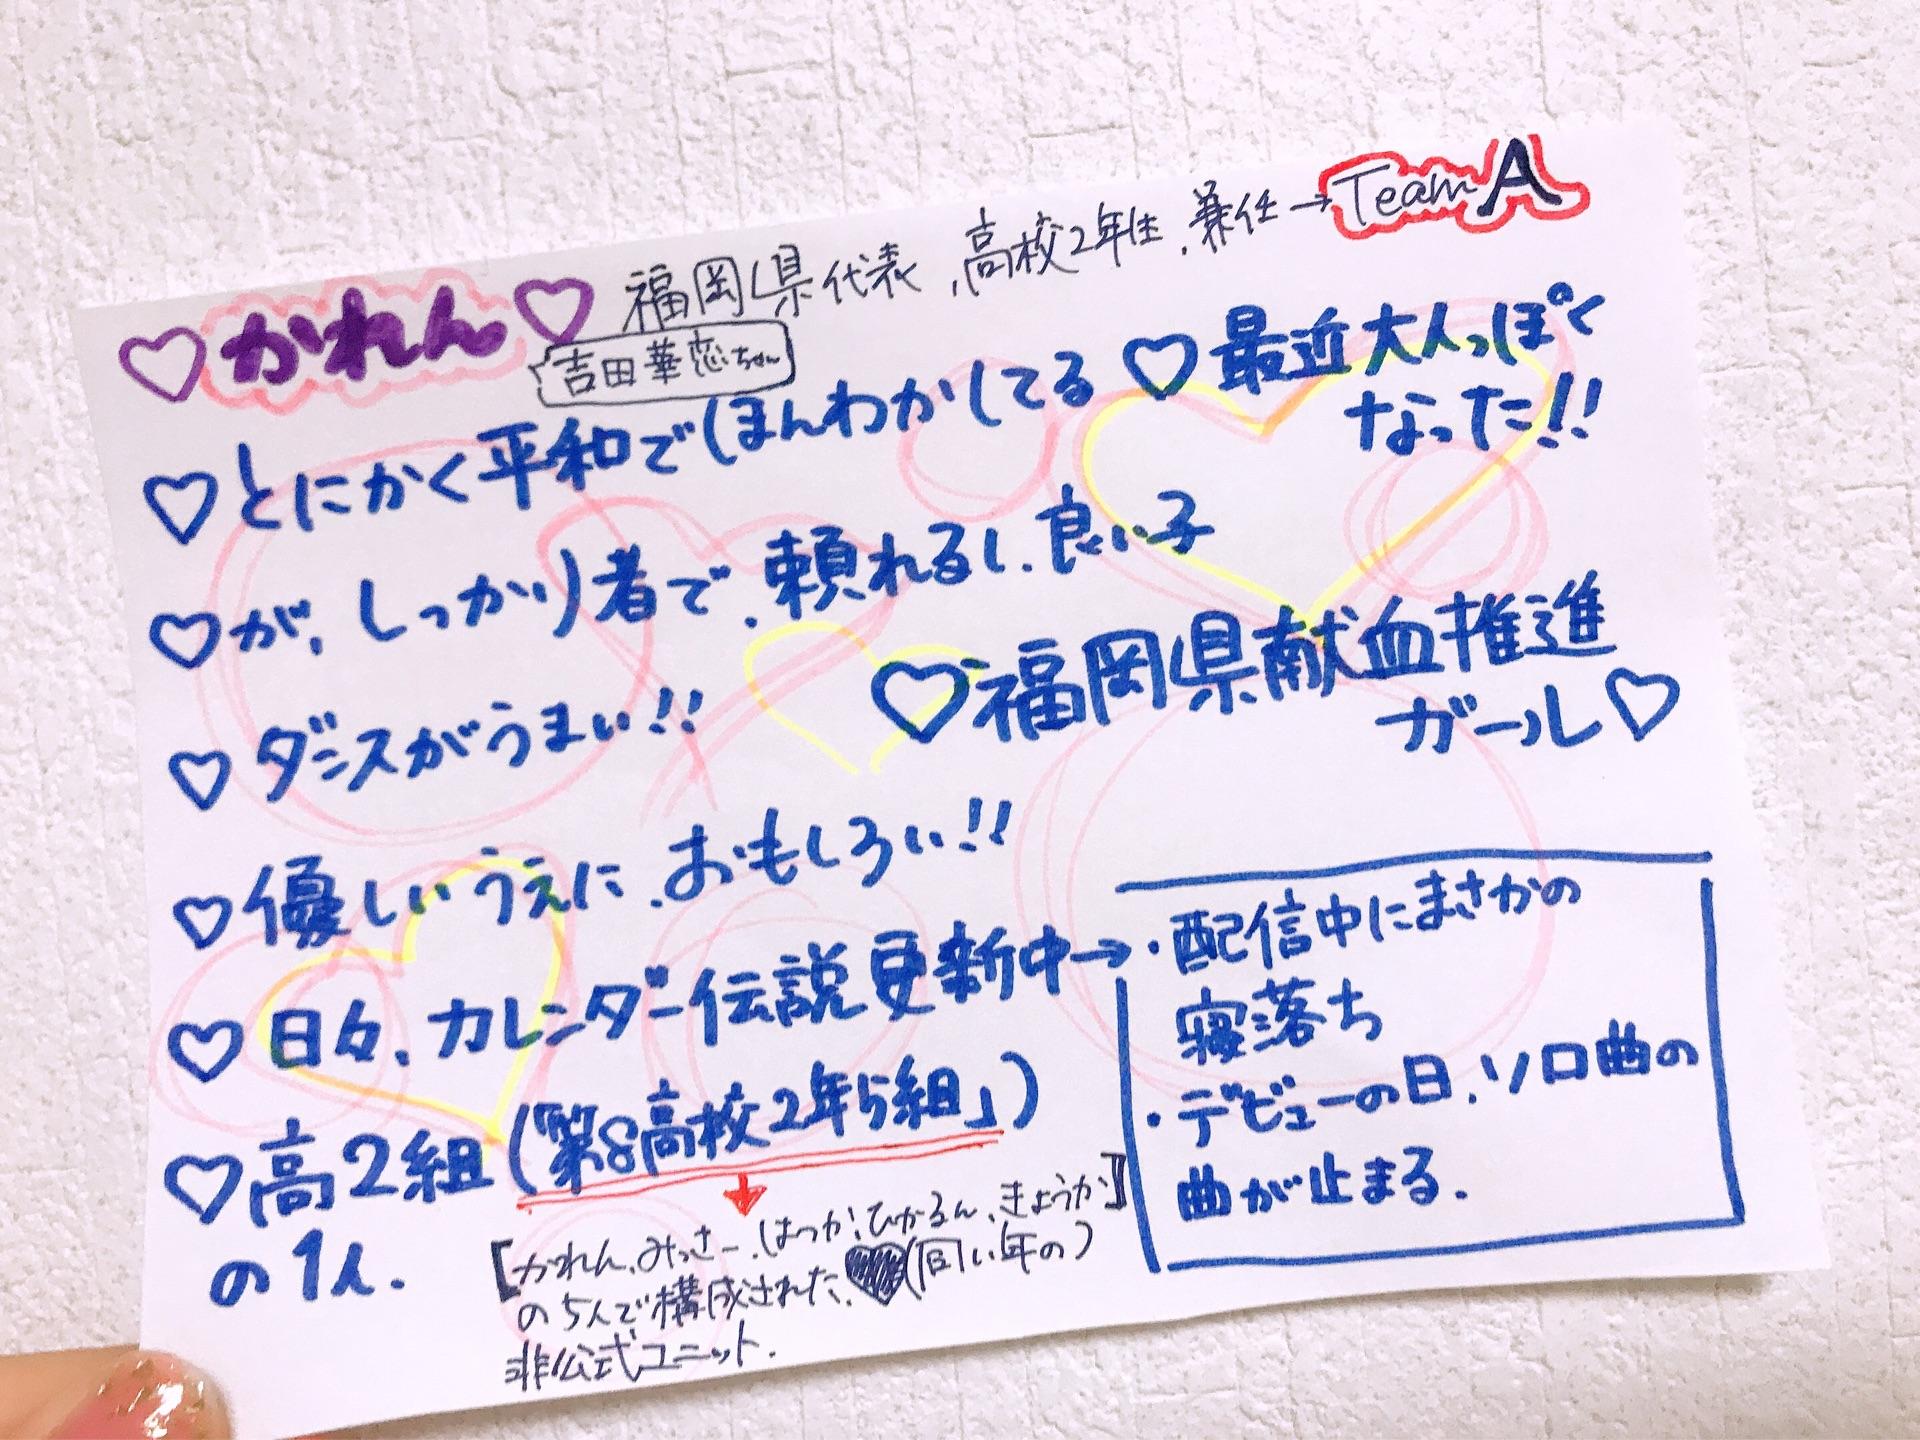 ♡かれん♡ 福岡県代表、高校2年生、兼任→Team A
吉田華恋ちゃん
♡とにかく平和でほんわかしてる
♡最近大人っぽく
なった!!
♡が、しっかり者で、頼れるし、良い子
♡ダンスがうまい!!
♡福岡県献血推進
ガール♡
♡優しいうえに、おもしろい!!
♡日々、カレンダー伝説更新中→
・配信中にまさかの
寝落ち
・デビューの日、ソロ曲の
曲が止まる.
♡高2組(「第8高校2年5組」)
の1人.
[かれん、みっさー、はつか、ひかるん、きょうか]
の5人で構成された、♥(同い年の)
非公式ユニット.